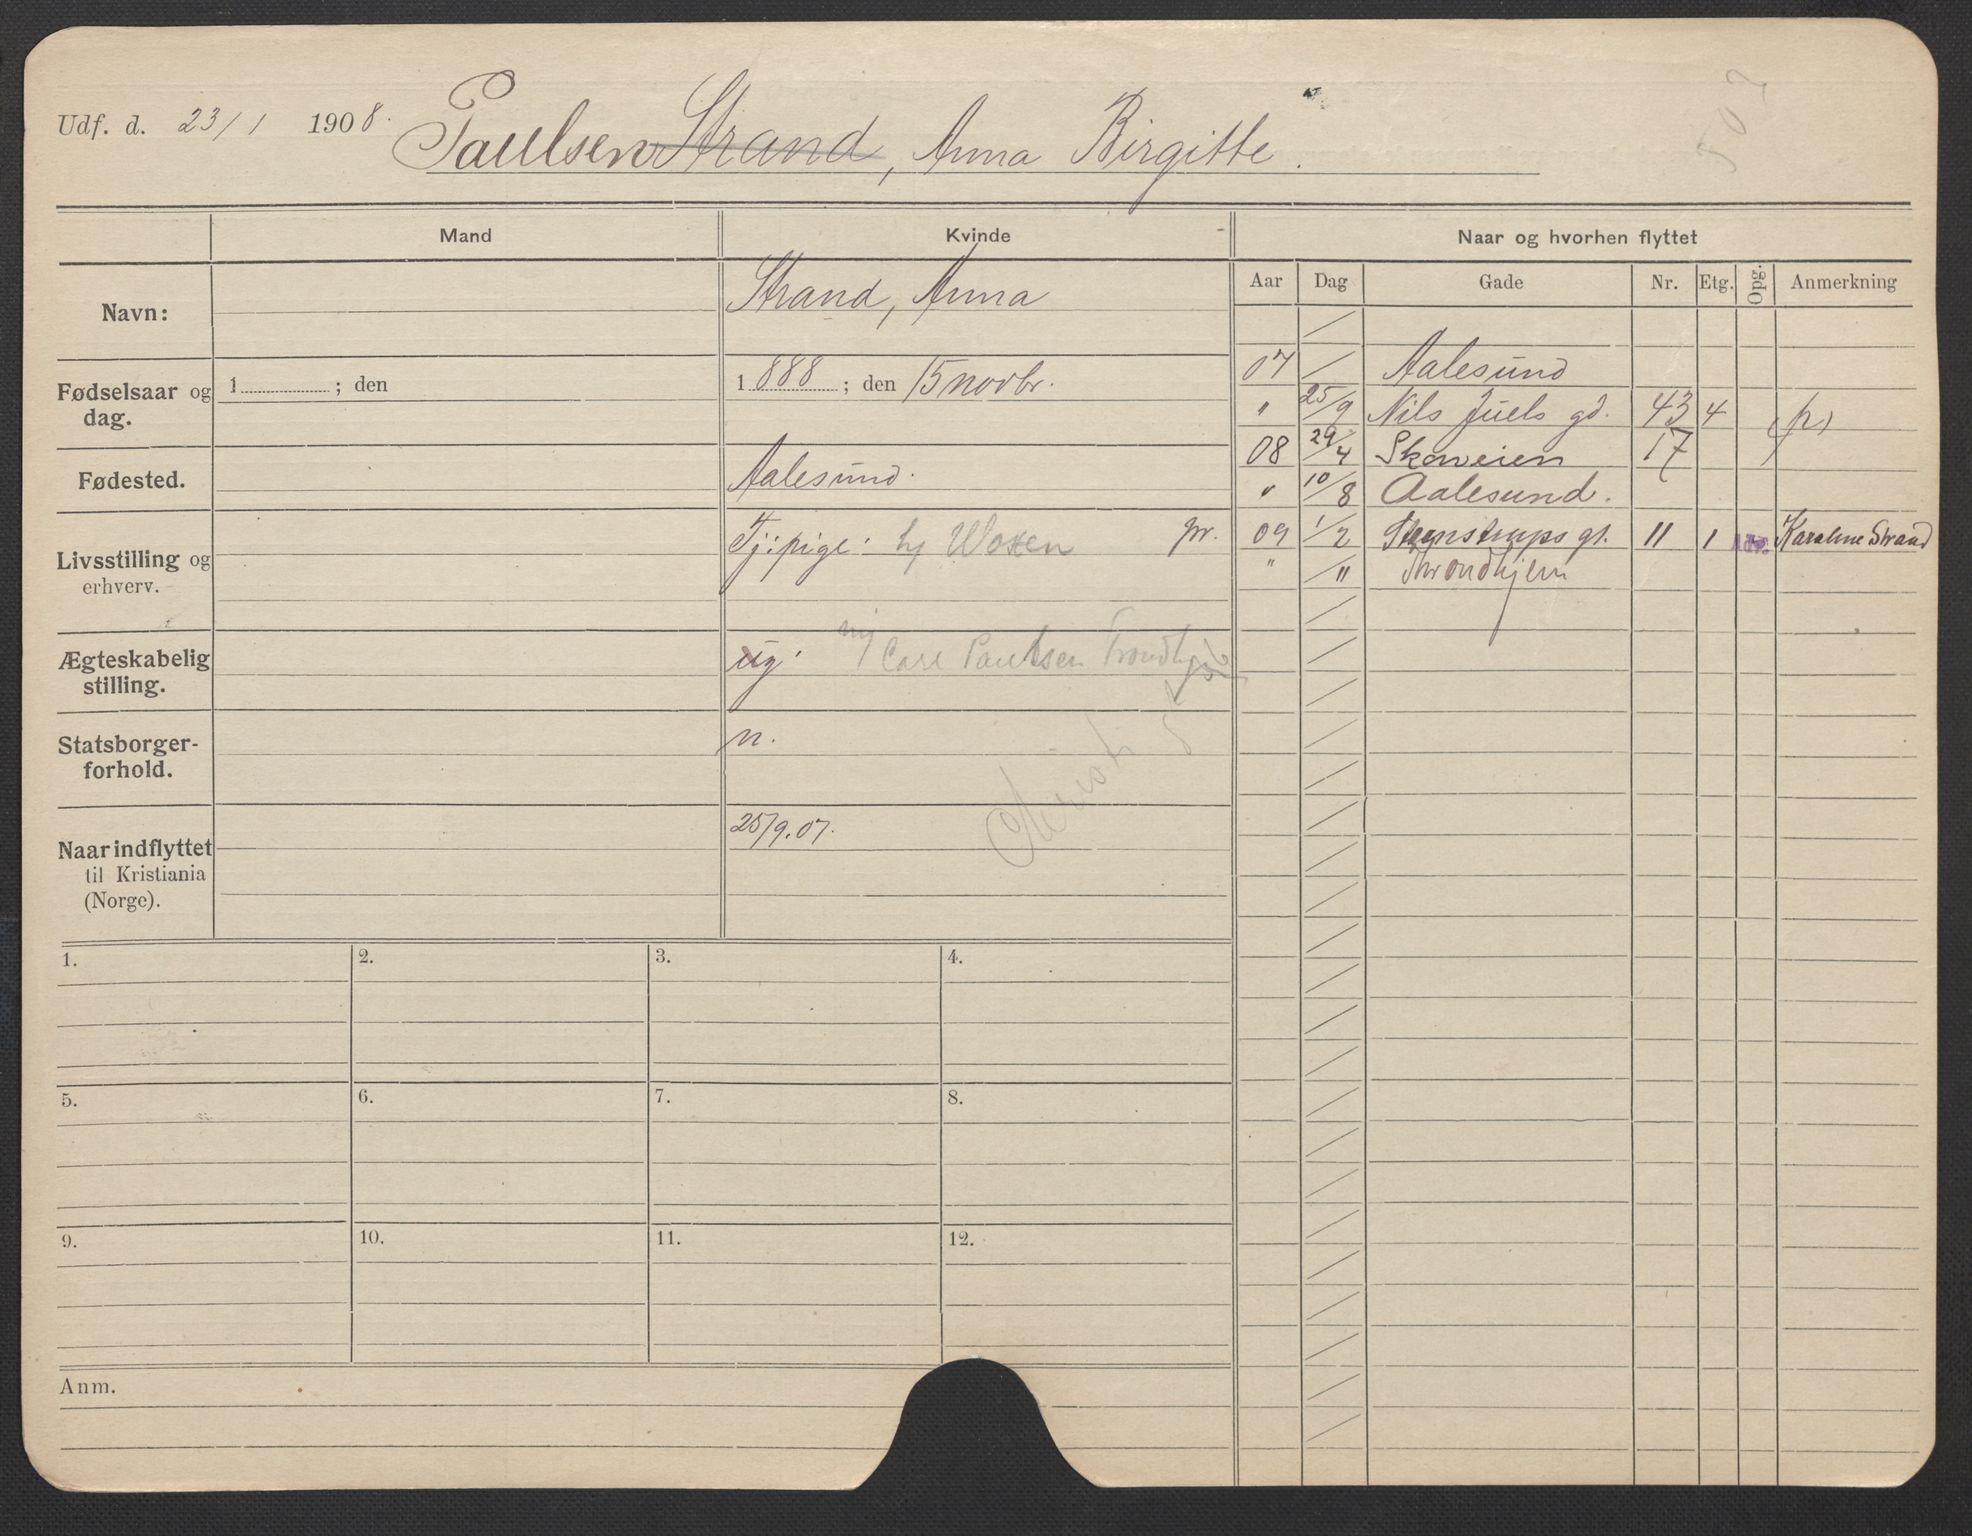 Udf. d. 23/1 1908. Paulsen Strand, Anna Birgitte.
Mand Kvinde Naar og hvorhen flyttet
Aar Dag Gade Nr. Etg. Opg. Anmerkning
Navn: Strand, Anna
Fødselsaar og dag. 1 ; den 1888 ; den 15 novbr.
Fødested. Aalesund.
Livsstilling og erhverv. Tj: pige: hj Woxen pr.
Ægteskabelig stilling. ug. Carl Paulsen Trondhjem
Statsborger-forhold. n.
Christi
Naar indflyttet til Kristiania (Norge). 25/9.07.
07 / Aalesund
" 25/9 Nils Juels gd. 43 4 (p)
08 29/4 Skovveien 17
" 10/8 Aalesund.
09 1/2 Stenstrups gt. 11 1 Adr. Karoline Strand
" /" Throndhjem
1. 2. 3. 4.
5. 6. 7. 8.
9. 10. 11. 12.
Anm.